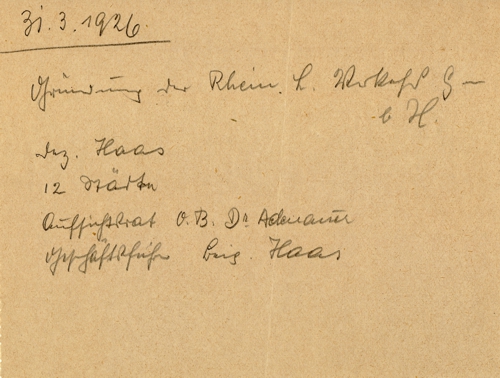 31.3.1926.
Gründung der Rhein. L. Verkehrs G-
b H.
Dez. Haas
12 Städte
Aufsichtsrat O.B. Dr Adenauer
Geschäftsführer Beig. Haas